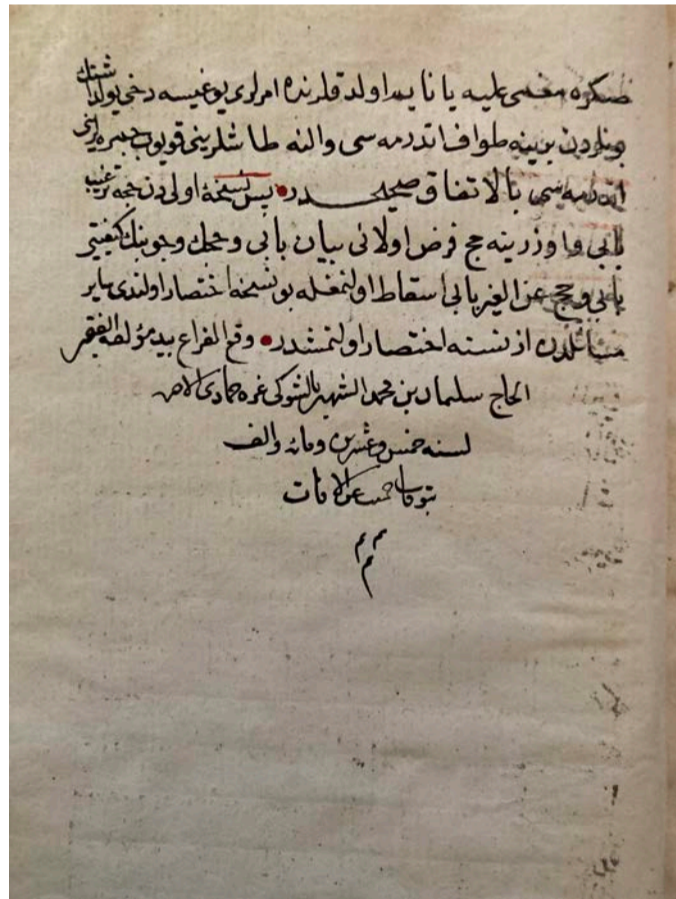 صكره مغمى عليه يا نايم اولد قلرنده امرلرى يوغيسه دخى يولداشنك
بونلردن برينه طواف اتدرمه سى والنه طاشلرينى قويوب جمره يه رمى
اتدرمه سى بالاتفاق صحيحدر پس نسخۀ اولى دن حجه ترغيب
بابى و اوزرينه حج فرض اولانى بيان بابى و حجك وجوبنك كيفيتى
بابى و حج عن الغير بابى اسقاط اولنمغله بو نسخه اختصار اولندى ساير
مسائلدن از نسنه اختصار اولنمشدر وقع الفراغ بيد مؤلفه الفقير
الحاج سليمان بن محمد الشهير بالشوكى غره جمادى الاخر
لسنه خمس وعشرين ومائه والف
بتوقات حميت عن الافات
م م م